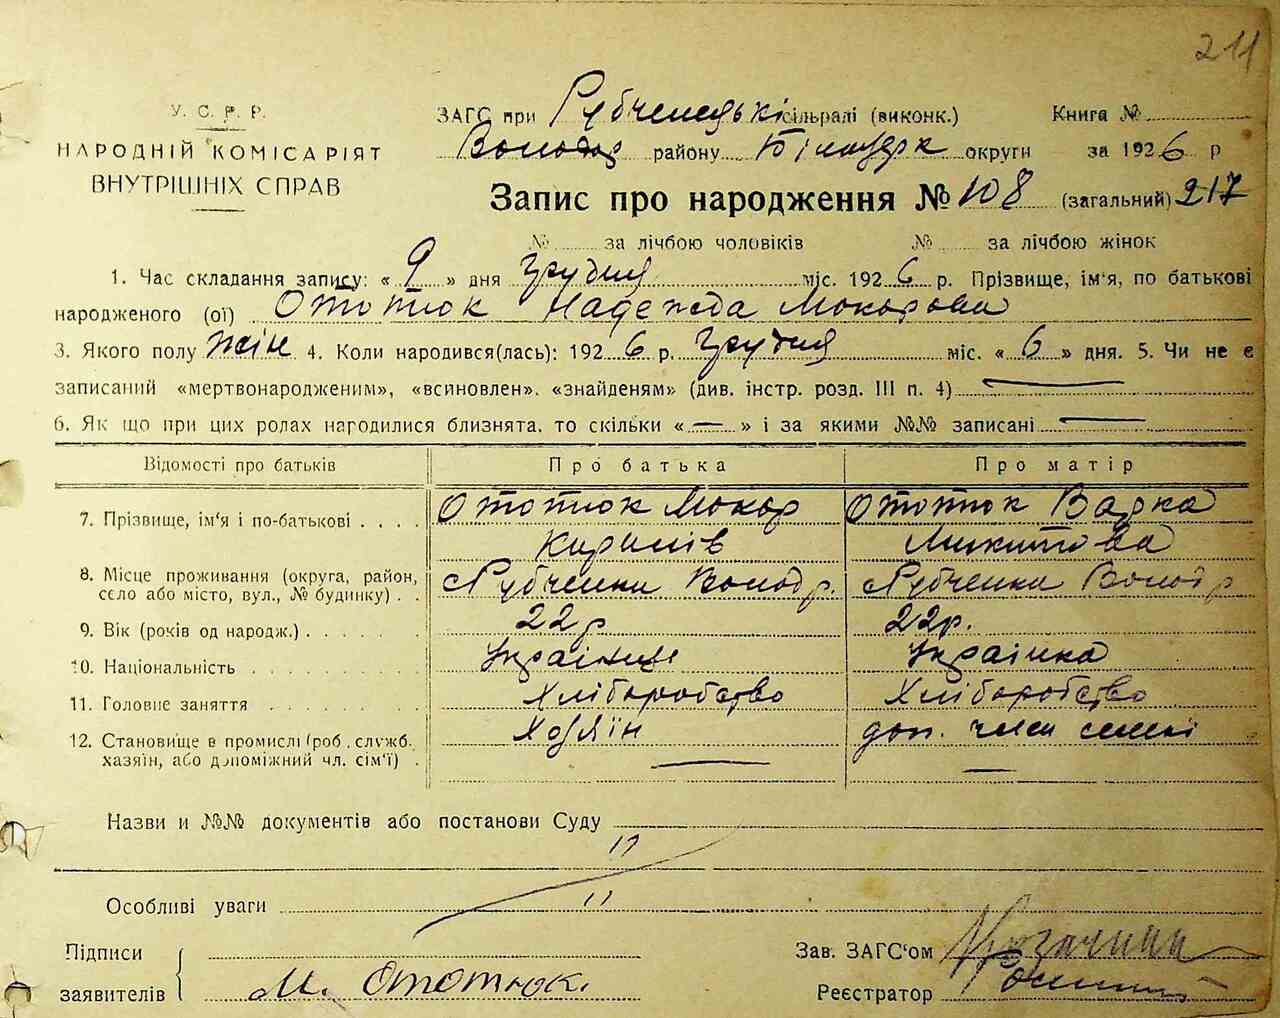 211
У. С. Р. Р.
НАРОДНІЙ КОМІСАРІЯТ
ВНУТРІШНІХ СПРАВ
ЗАГС при Рубченецькі сільраді (виконк.) Книга №
Володар району Білоцерк округи за 1926 р
Запис про народження № 108 (загальний) 217
№ за лічбою чоловіків № за лічбою жінок
1. Час складання запису: « 9 » дня Грудня міс. 1926 р. Прізвище, ім‘я, по батькові
народженого (ої) Ототюк Надежда Мокорова
3. Якого полу жін 4. Коли народився(лась): 1926 р. Грудня міс. « 6 » дня. 5. Чи не є
записаний «мертвонародженим», «всиновлен». «знайденям» (див. інстр. розд. III п. 4) —
6. Як що при цих ролах народилися близнята. то скільки « — » і за якими №№ записані —
Відомості про батьків Про батька Про матір
7. Прізвище, ім‘я і по-батькові . . . . Ототюк Мокор Ототюк Варка
Кирилів Микитова
8. Місце проживання (округа, район, Рубченки Володр. Рубченки Володр
село або місто, вул., № будинку) . .
9. Вік (років од народж.) . . . . . 22р 22р.
10. Національність . . . . . . . . Українец Українка
11. Головне заняття . . . . . . . Хліборобство Хліборобство
12. Становище в промислі (роб . служб. Хозяїн доп. член семьі
хазяін, або допоміжний чл. сім‘ї) . — —
Назви и №№ документів або постанови Суду
"
Особливі уваги "
Підписи Зав. ЗАГС‘ом
заявителів М. Ототюк. Реєстратор